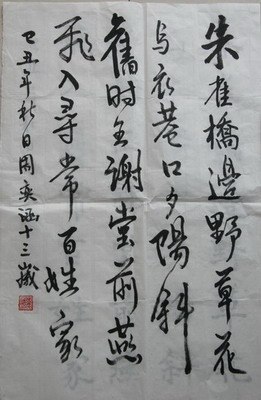 朱雀橋邊野草花
烏衣巷口夕陽斜
舊时王謝堂前燕
飛入尋常百姓家
己丑年秋日周奕涵十三歲